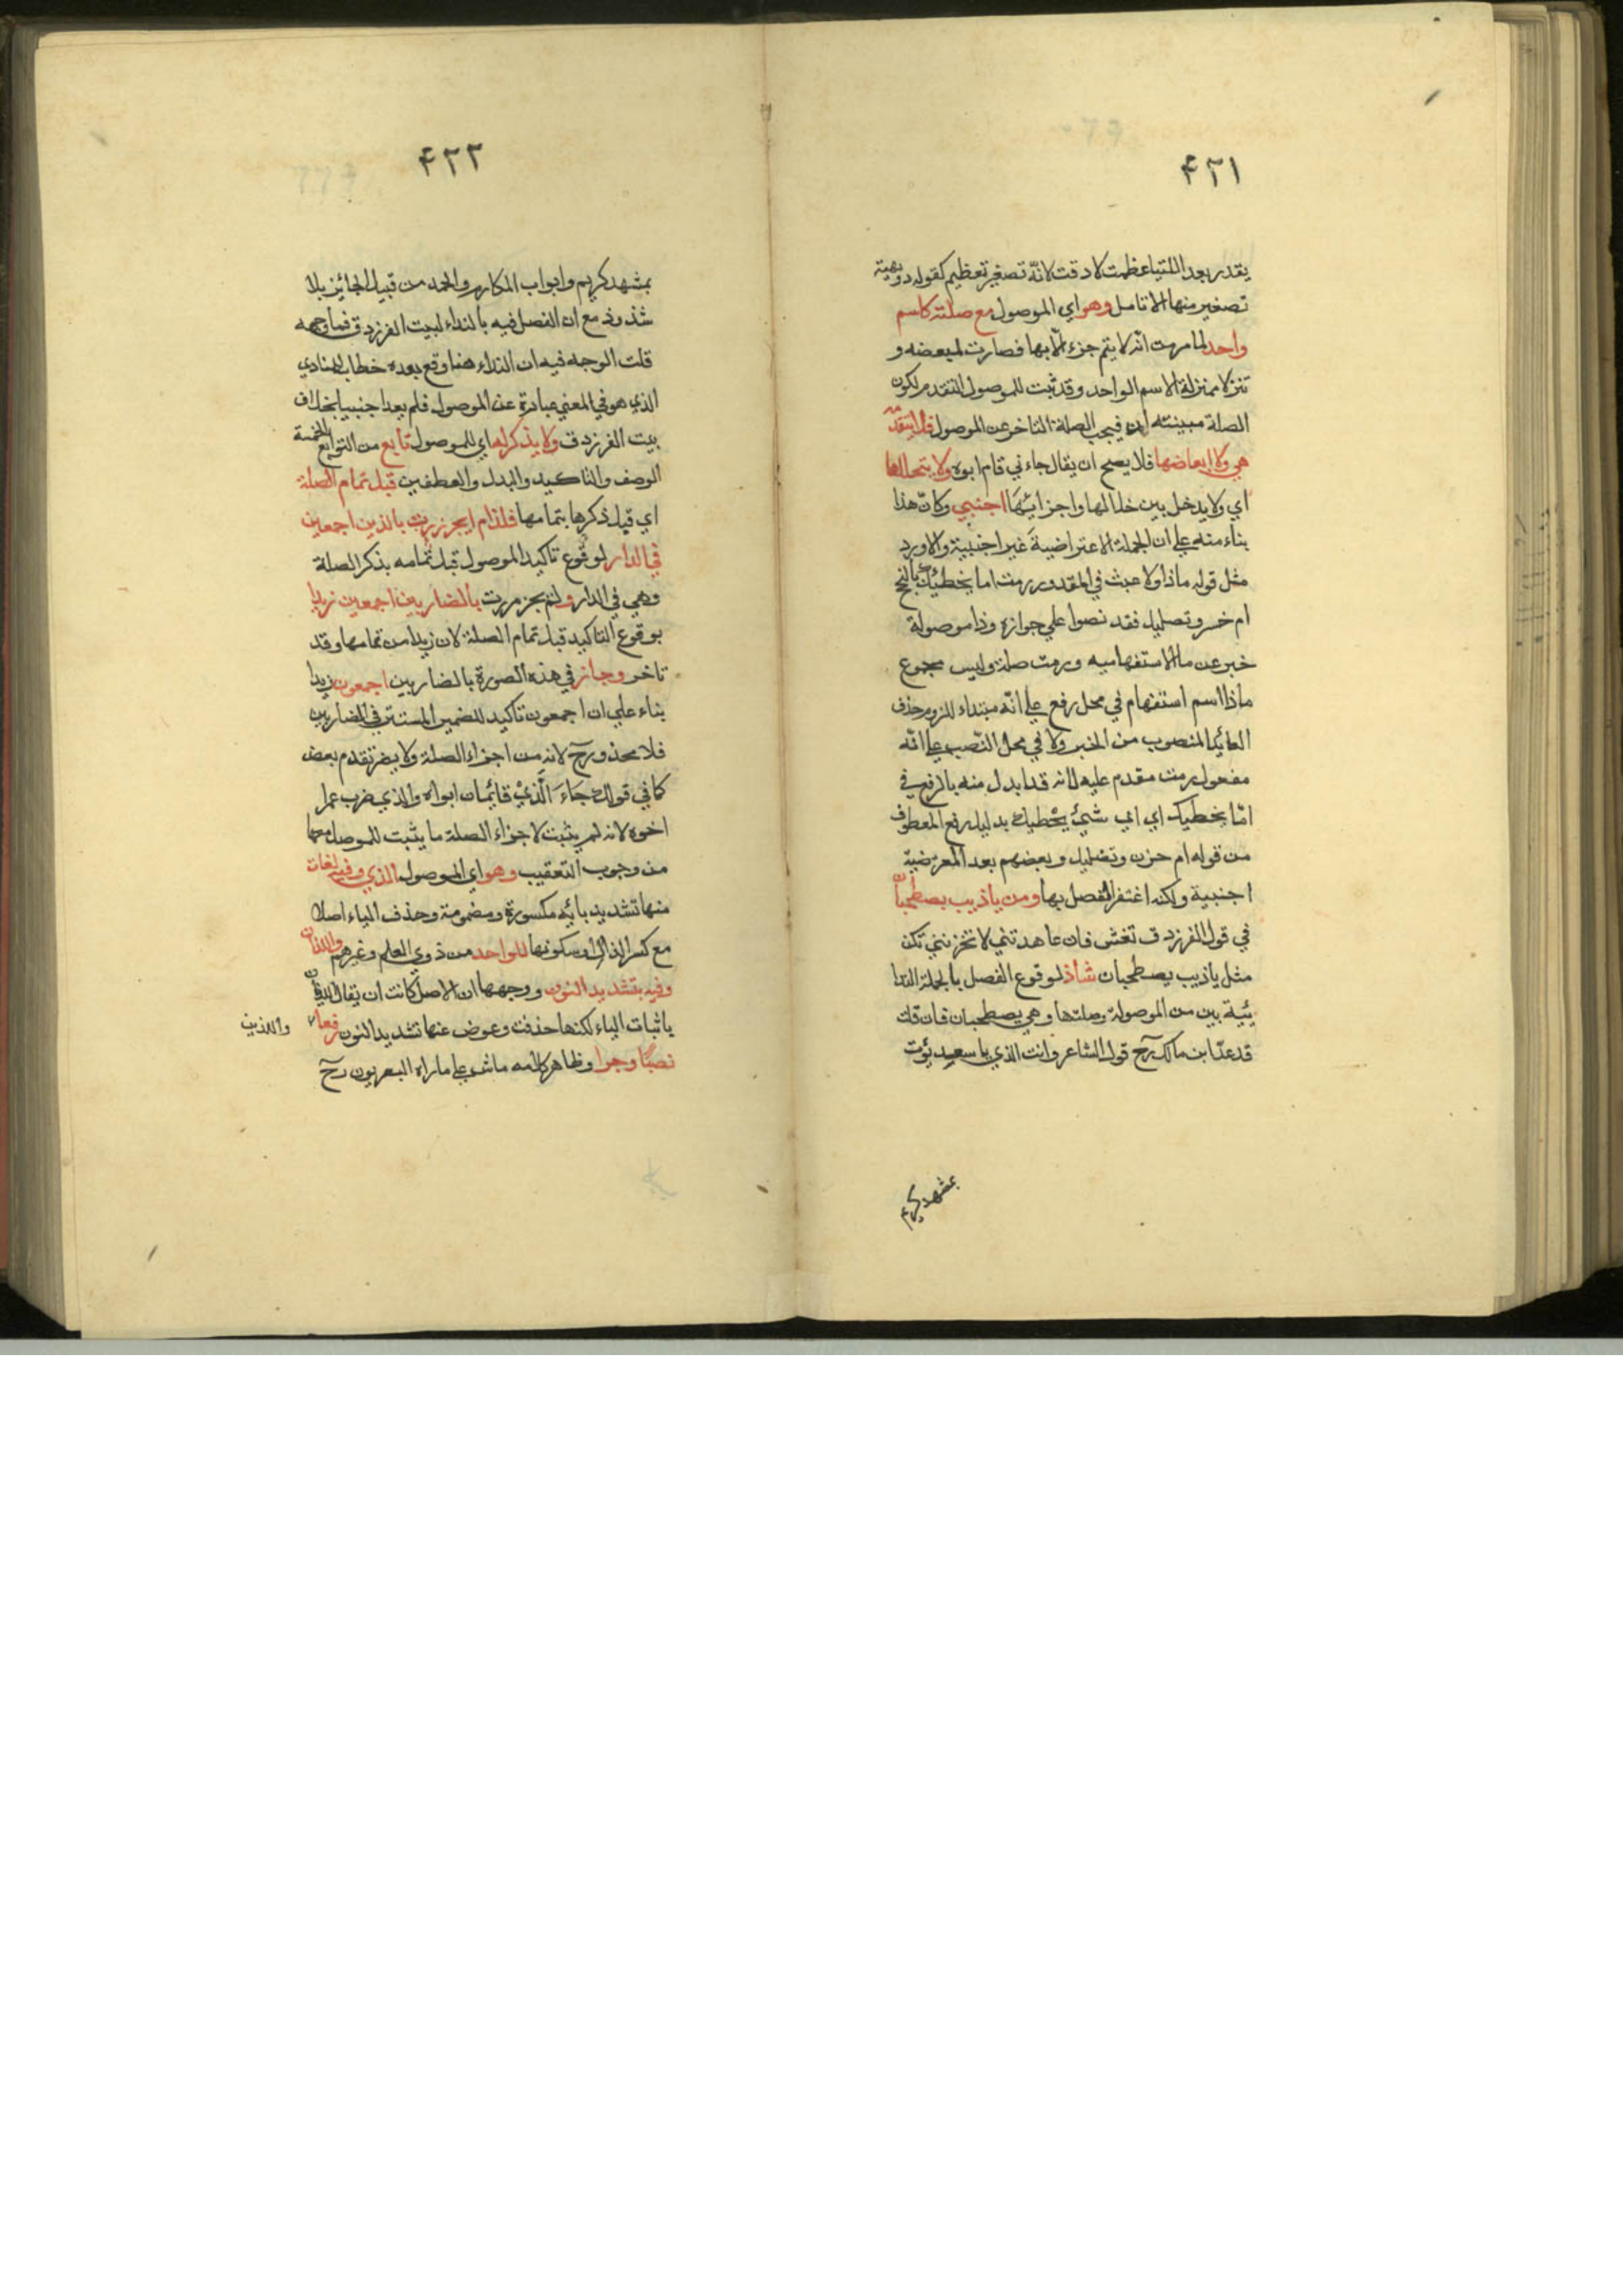 ٤٢١
يقدر بعد اللتيا عظمت لا دقت لانه تصغير تعظيم كقوله دويهية
تصغير منها الانامل وهو اي الموصول مع صلته كاسم
واحد لما مر من انه لا يتم جزء الا بها فصارت لبعضه و
تنزلا منزلة الاسم الواحد وقد ثبت للموصول التقدم لكون
الصلة مبينته له فيجب الصلة التاخر عن الموصول فلا يتقدم
هي ولا ابعاضها فلا يصح ان يقال جاءني قام ابوه ولا يتخللها
اي ولا يدخل بين خلالها واجزائها اجنبي وكان هذا
بناء منه علي ان الجملة الاعتراضية غير اجنبية والا ورد
مثل قوله ماذا ولا عبث في المقدور رمت اما يخطيك بالنجح
ام خسر وتضليل فقد نصوا علي جوازه وذا موصولة
خبر عن ما الاستفهاميه ورمت صلة وليس مجموع
ماذا اسم استفهام في محل رفع علي انه مبتداء للزوم حذف
العايد المنصوب من الخبر ولا في محل النصب علي انه
مفعول رمت مقدم عليه لانه قد ابدل منه بالرفع في
اما يخطيك اي اي شئ يخطيك بدليل رفع المعطوف
من قوله ام حزن وتضليل وبعضهم بعد المعرضية
اجنبية ولكنه اغتفر الفصل بها ومن ياذيب يصطحبان
في قول الفرزدق تغش فان عاهدتني لا تخزنني نكن
مثل ياذيب يصطحبان شاذ لوقوع الفصل بالجملة الندا
ئية بين من الموصولة وصلتها وهي يصطحبان فان قلت
قد عد ابن مالك رح قول الشاعر وانت الذي يا سعد بؤت
بمشهد كريم
٤٢٢
بمشهد كريم وابواب المكارم والحمد من قبيل الجائز بلا
شذوذ مع ان الفصل فيه بالنداء لبيت الفرزدق فما وجهه
قلت الوجه فيه ان النداء هنا وقع بعده خطاب المنادي
الذي هو في المعني عبارة عن الموصول فلم يعد اجنبيا بخلاف
بيت الفرزدق ولا يذكر لها اي للموصول تابع من التوابع الخمسة
الوصف والتاكيد والبدل والعطفين قبل تمام الصلة
اي قبل ذكرها بتمامها فلذا لم يجز مررت بالذين اجمعين
في الدار لوقوع تاكيد الموصول قبل تمامه بذكر الصلة
وهي في الدار ولم يجز مررت بالضاربين اجمعين زيدا
بوقوع التاكيد قبل تمام الصلة لان زيدا من تمامها وقد
تاخر وجاز في هذه الصورة بالضاربين اجمعون زيدا
بناء علي ان اجمعون تاكيد للضمير المستتر في الضاربين
فلا محذور رح لانه من اجزاء الصلة ولا يضر تقدم بعض
كما في قولك جاء الذي قائمان ابواه والذي ضرب عمرا
اخوه لانه لم يثبت لاجزاء الصلة ما يثبت للموصول معها
من وجوب التعقيب وهو اي الموصول الذي وفيه لغات
منها تشديد يائه مكسورة ومضمومة وحذف الياء اصلا
مع كسر الذال او سكونها للواحد من ذوي العلم وغيرهم واللذان
وفيه بتشديد النون ووجهها ان الاصل كانت ان يقال اللذيان
باثبات الياء لكنها حذفت وعوض عنها تشديد النون رفعا
واللذين
نصبا وجرا وظاهر كلامه ماش علي ما راه البصريون رح